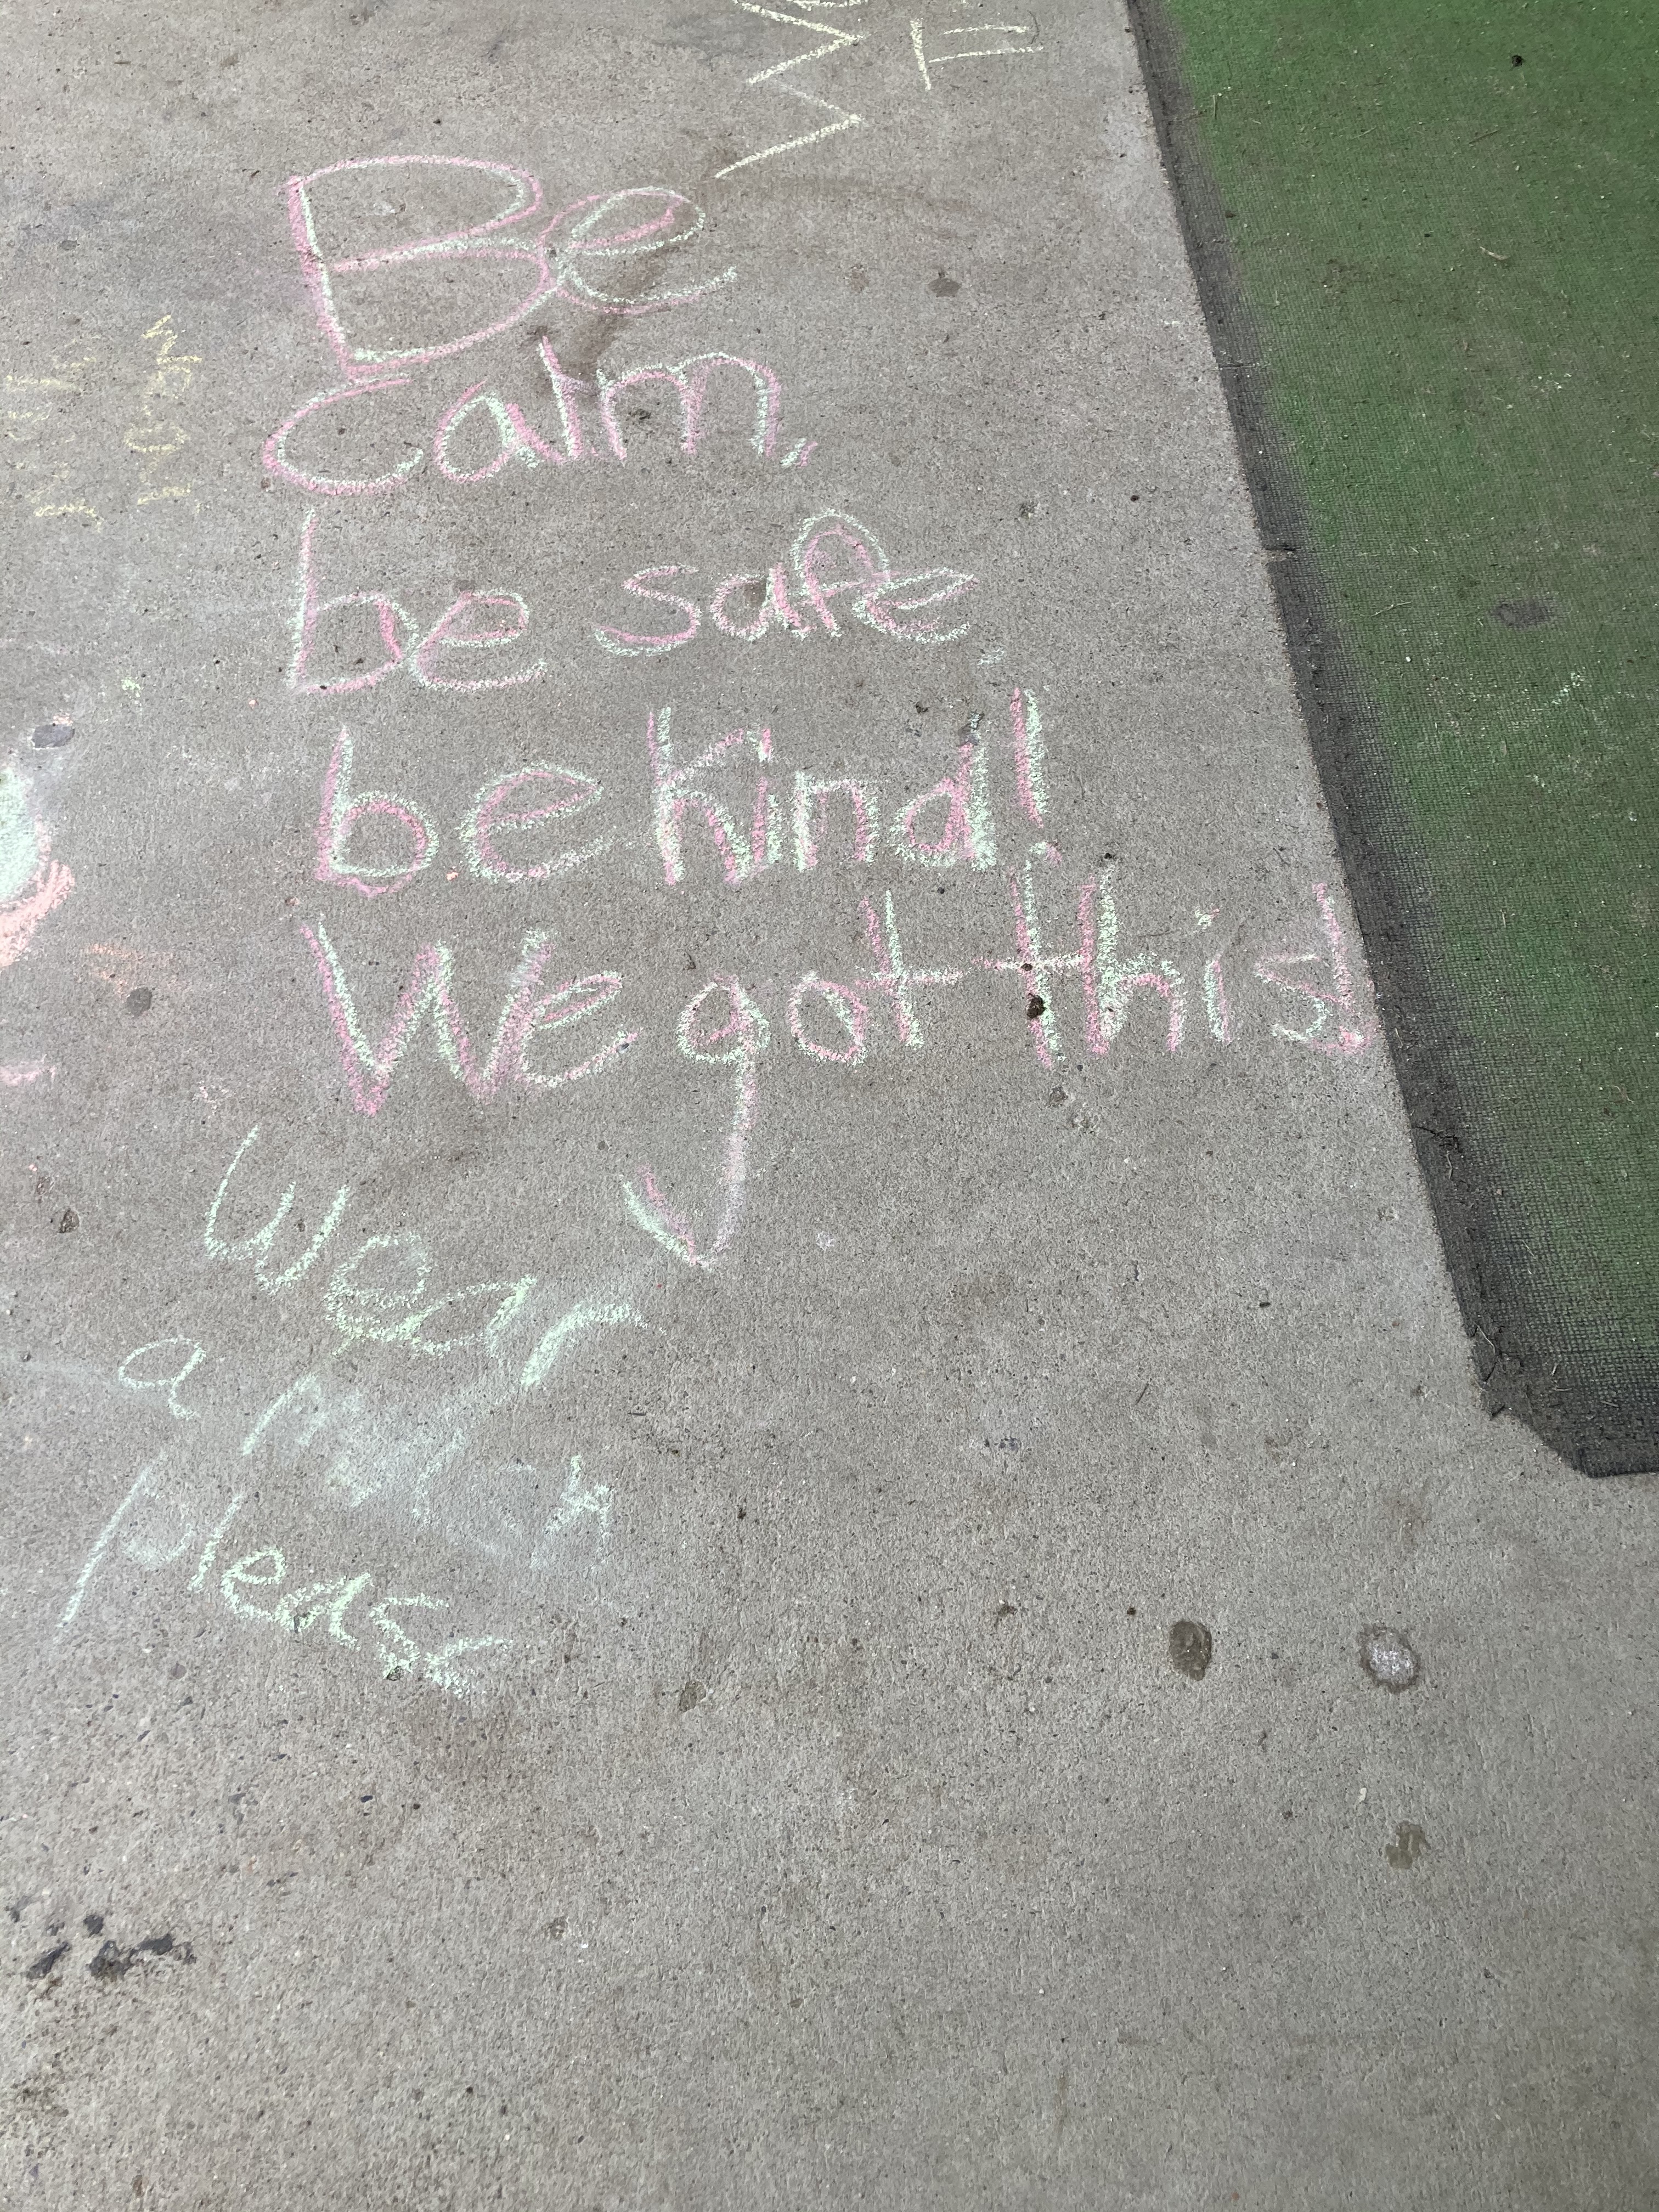 Be
calm,
be safe,
be kind!
We got this!
wear
a mask
please